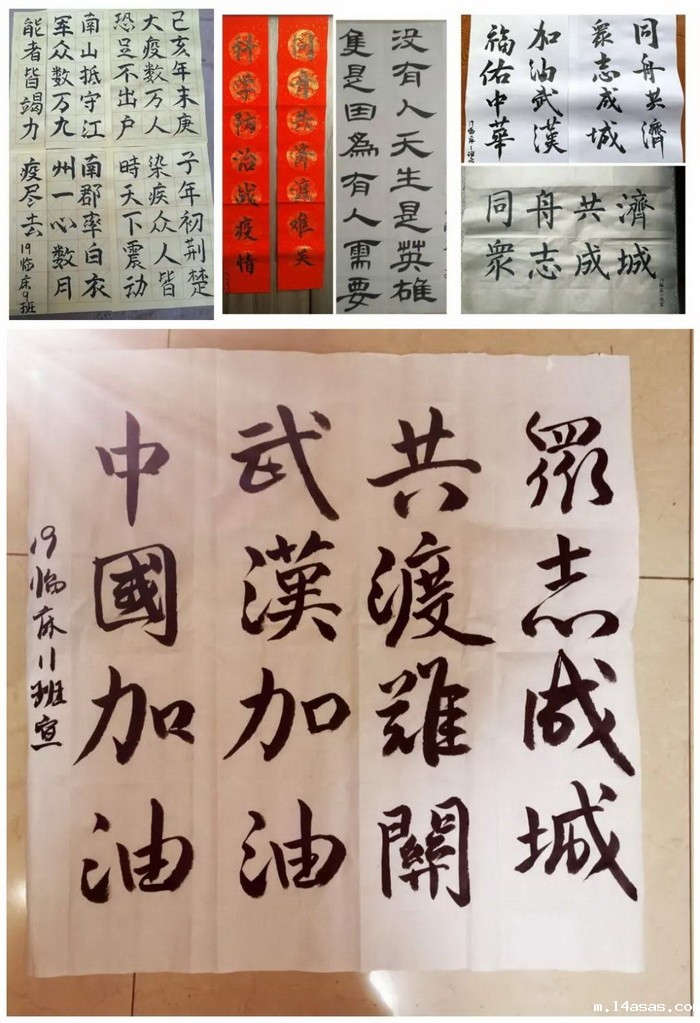 己亥年末庚子年初荆楚
大疫数万人染疾众人皆
恐足不出户時天下震动
南山抵守江南郡率白衣
军众数万九州一心数月
能者皆竭力疫尽去
19临床9班
同舟共济渡难关
科学防治战疫情
没有人天生是英雄
隻是因爲有人需要
同舟共濟
眾志成城
加油武漢
福佑中華
同舟共濟
衆志成城
眾志成城
共渡難關
武漢加油
中國加油
19临麻11班宣
m.14asas.co